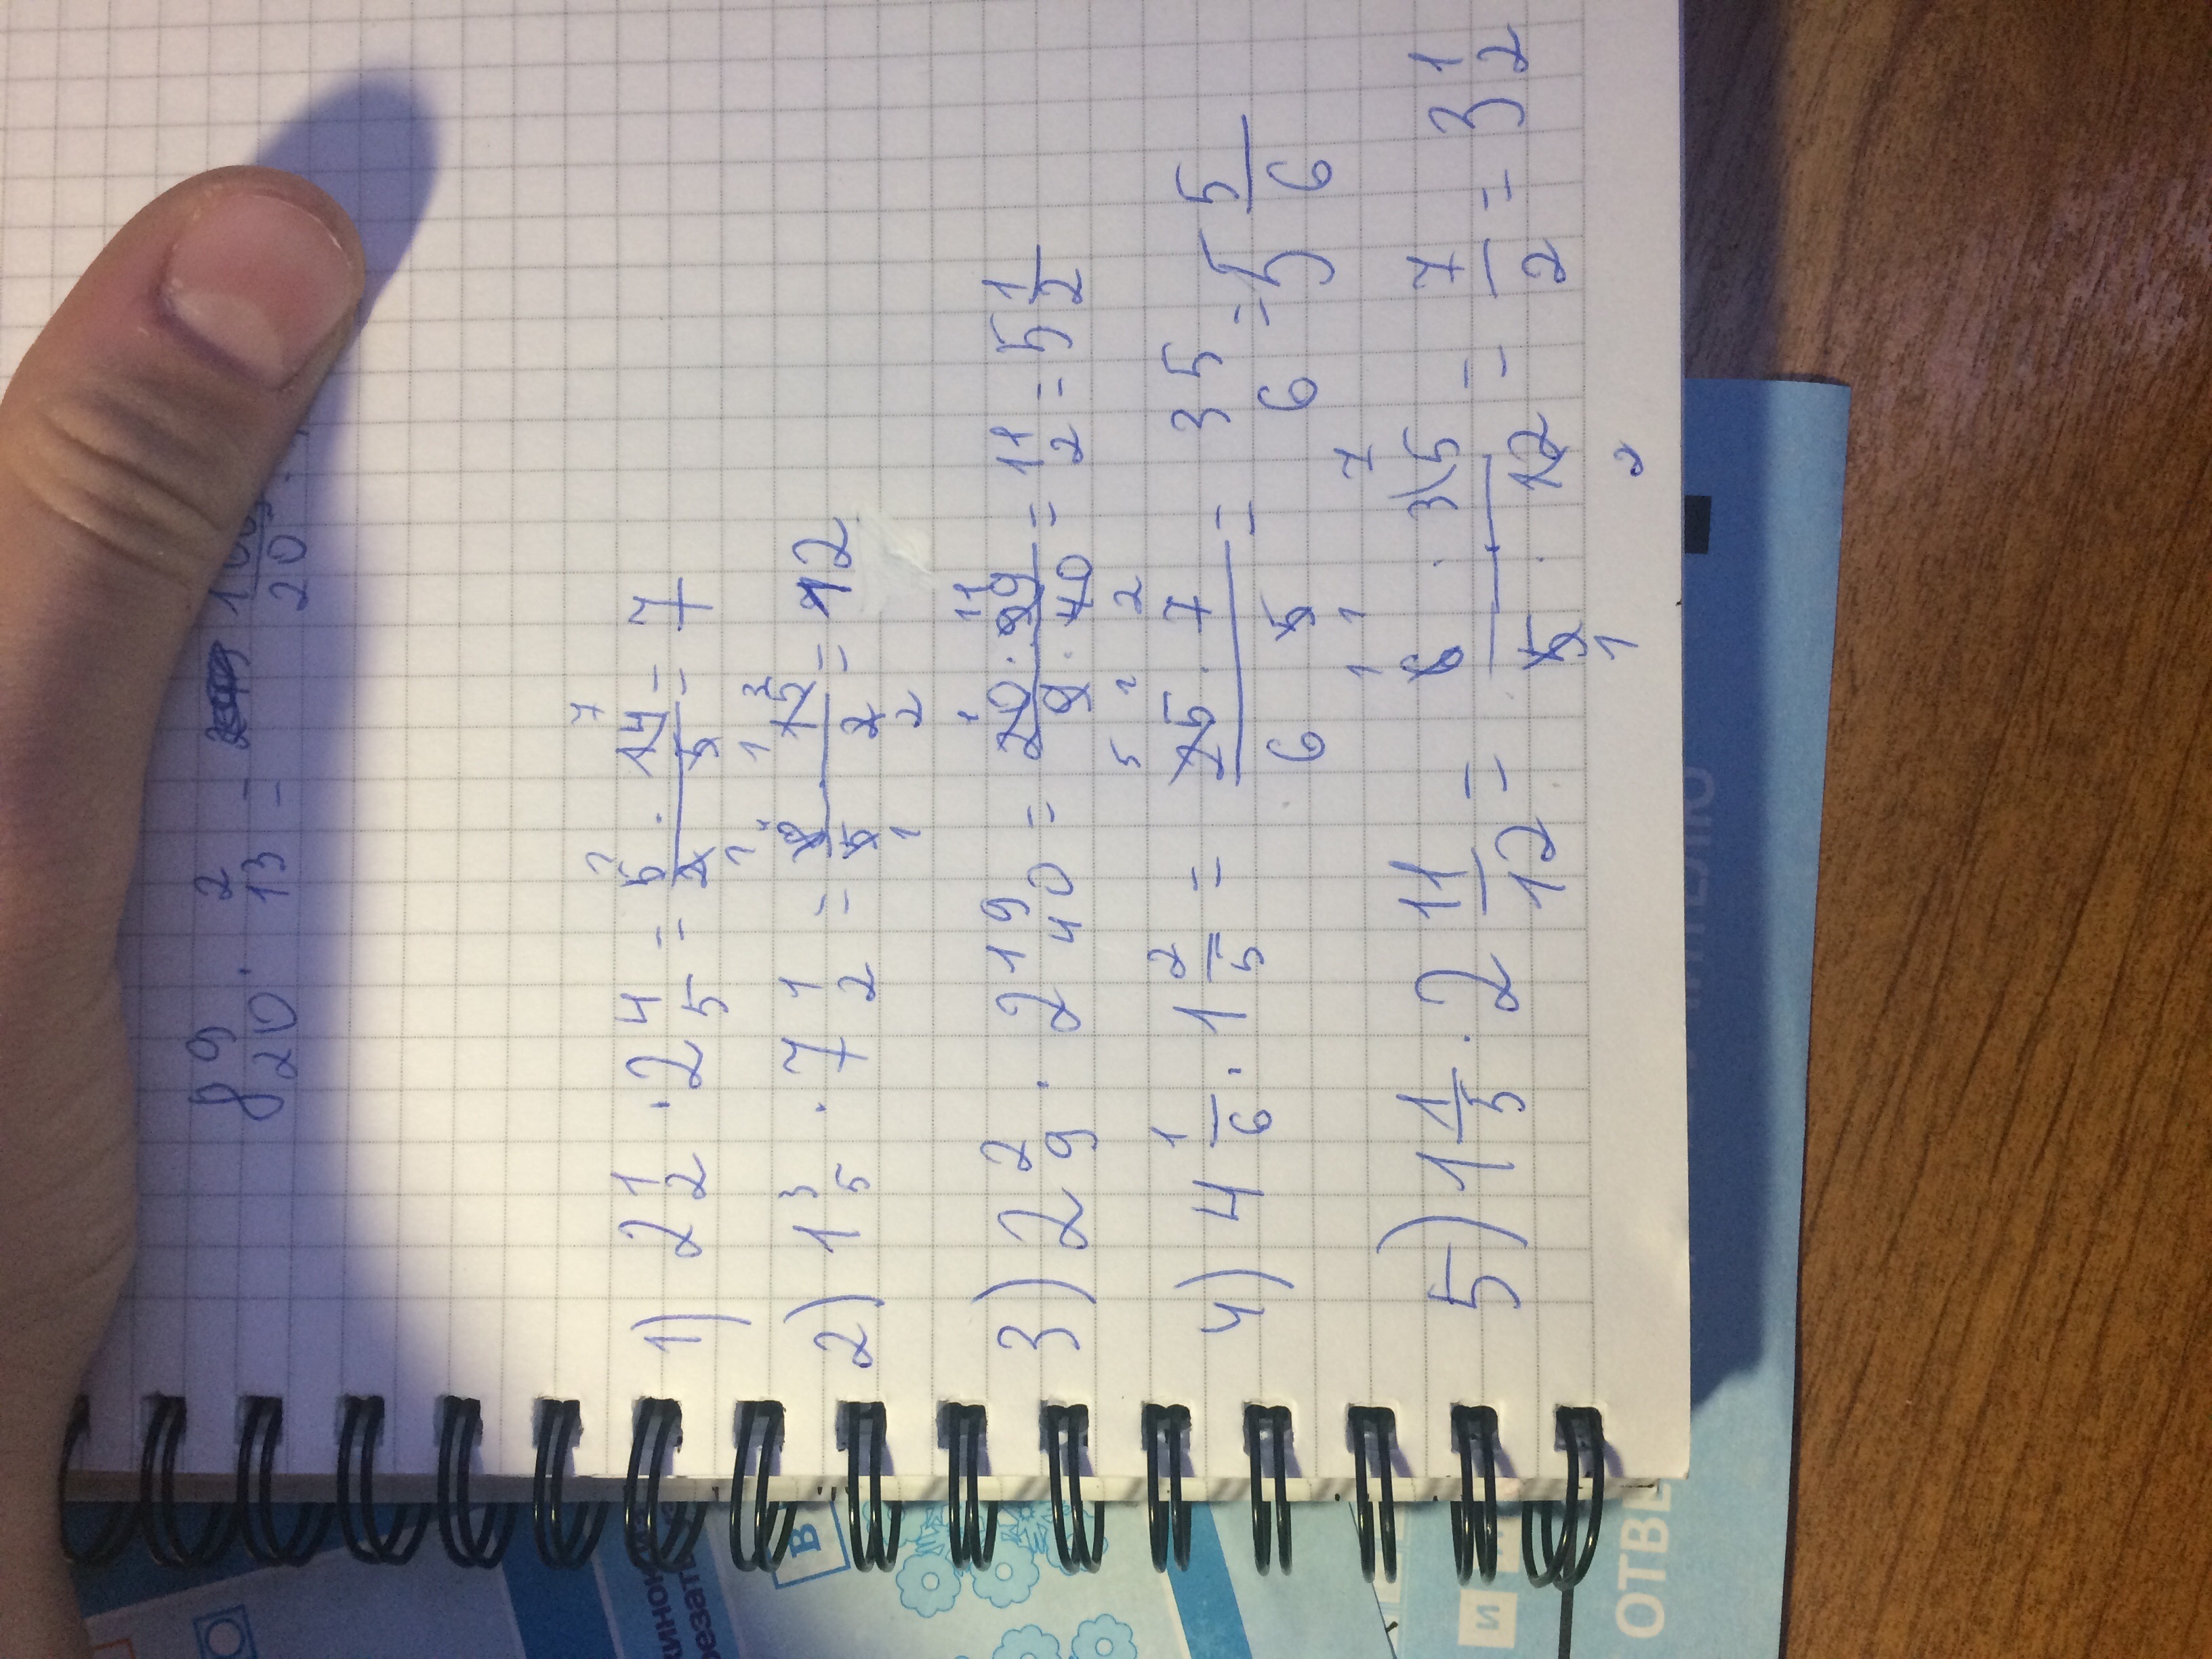 8 9/20 · 2/13 =
20
1) 2 1/2 · 2 4/5 = 5 · 14 / 2 · 5 = 7
2) 1 3/5 · 7 1/2 = 8 · 15 / 5 · 2 = 12
3) 2 2/9 · 2 19/40 = 20 · 99 / 9 · 40 = 11/2 = 5 1/2
4) 4 1/6 · 1 2/5 = 25 · 7 / 6 · 5 = 35/6 = 5 5/6
5) 1 1/5 · 2 11/12 = 6 · 35 / 5 · 12 = 7/2 = 3 1/2
В
И
ОТВЕ